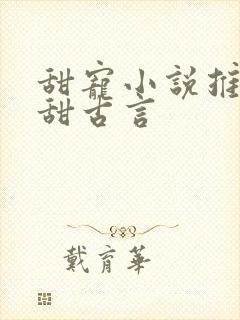 甜寵小説推
甜古言
戴育華